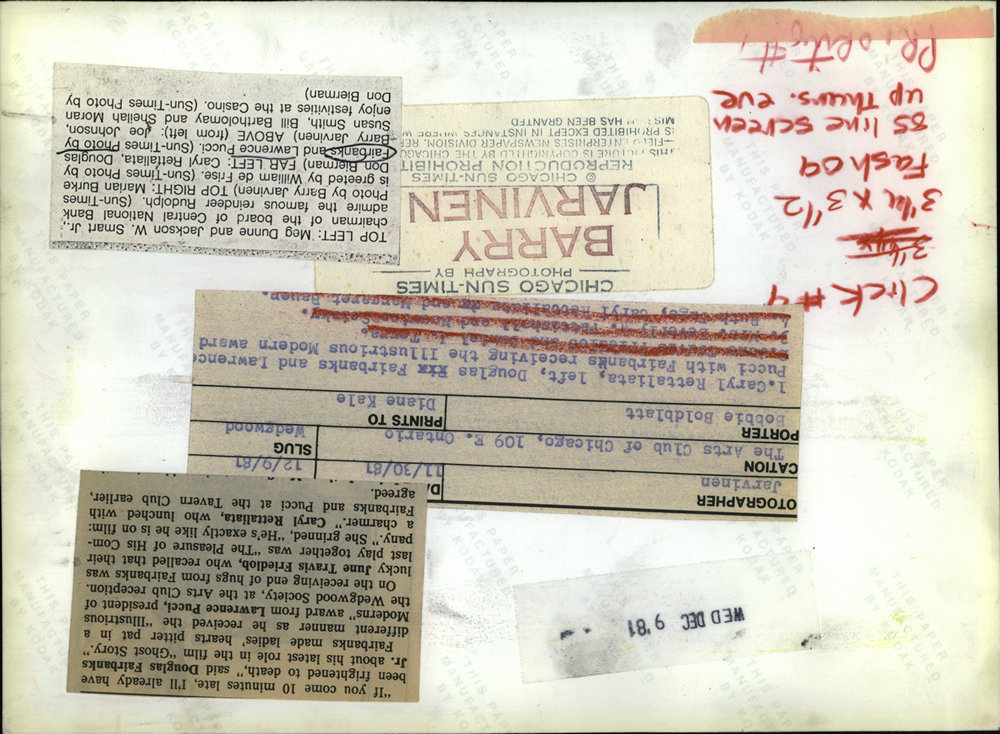 WED DEC 9 '81
"If you come 10 minutes late, I'll already have
been frightened to death," said Douglas Fairbanks
Jr. about his latest role in the film "Ghost Story."
Fairbanks made ladies' hearts pitter pat in a
different manner as he received the "Illustrious
Moderns" award from Lawrence Pucci, president of
the Wedgwood Society, at the Arts Club reception.
On the receiving end of hugs from Fairbanks was
lucky June Travis Friedlob, who recalled that their
last play together was "The Pleasure of His Com-
pany." She grinned, "He's exactly like he is on film:
a charmer." Caryl Rettaliata, who lunched with
Fairbanks and Pucci at the Tavern Club earlier,
agreed.
OTOGRAPHER
Jarvinen
DA
11/30/81
12/9/81
CATION
The Arts Club of Chicago, 109 E. Ontario
SLUG
Wedgwood
PORTER
Bobbie Boldblatt
PRINTS TO
Diane Kale
1.Caryl Rettaliata, left, Douglas Fairbanks and Lawrence
Pucci with Fairbanks receiving the Illustrious Modern award
CHICAGO SUN-TIMES
PHOTOGRAPH BY
BARRY
JARVINEN
© CHICAGO SUN-TIMES
REPRODUCTION PROHIBIT
THIS PICTURE IS COPYRIGHTED BY THE CHICAGO
FIELD ENTERPRISES NEWSPAPER DIVISION. REP
IS PROHIBITED EXCEPT IN INSTANCES WHERE
MIS HAS BEEN GRANTED
TOP LEFT: Meg Dunne and Jackson W. Smart Jr.,
chairman of the board of Central National Bank
admire the famous reindeer Rudolph. (Sun-Times
Photo by Barry Jarvinen) TOP RIGHT: Marian Burke
is greeted by William de Frise. (Sun-Times Photo by
Don Bierman) FAR LEFT: Caryl Rettaliata, Douglas
Fairbanks and Lawrence Pucci. (Sun-Times Photo by
Barry Jarvinen) ABOVE (from left): Joe Johnson,
Susan Smith, Bill Bartholomay and Sheilah Moran
enjoy festivities at the Casino. (Sun-Times Photo by
Don Bierman)
Click #4
3 1/4 x 3 1/2
Fash 09
85 line screen
up Thurs. eve
PRiority #1
THIS PAPER
MANUFACTURED
BY KODAK